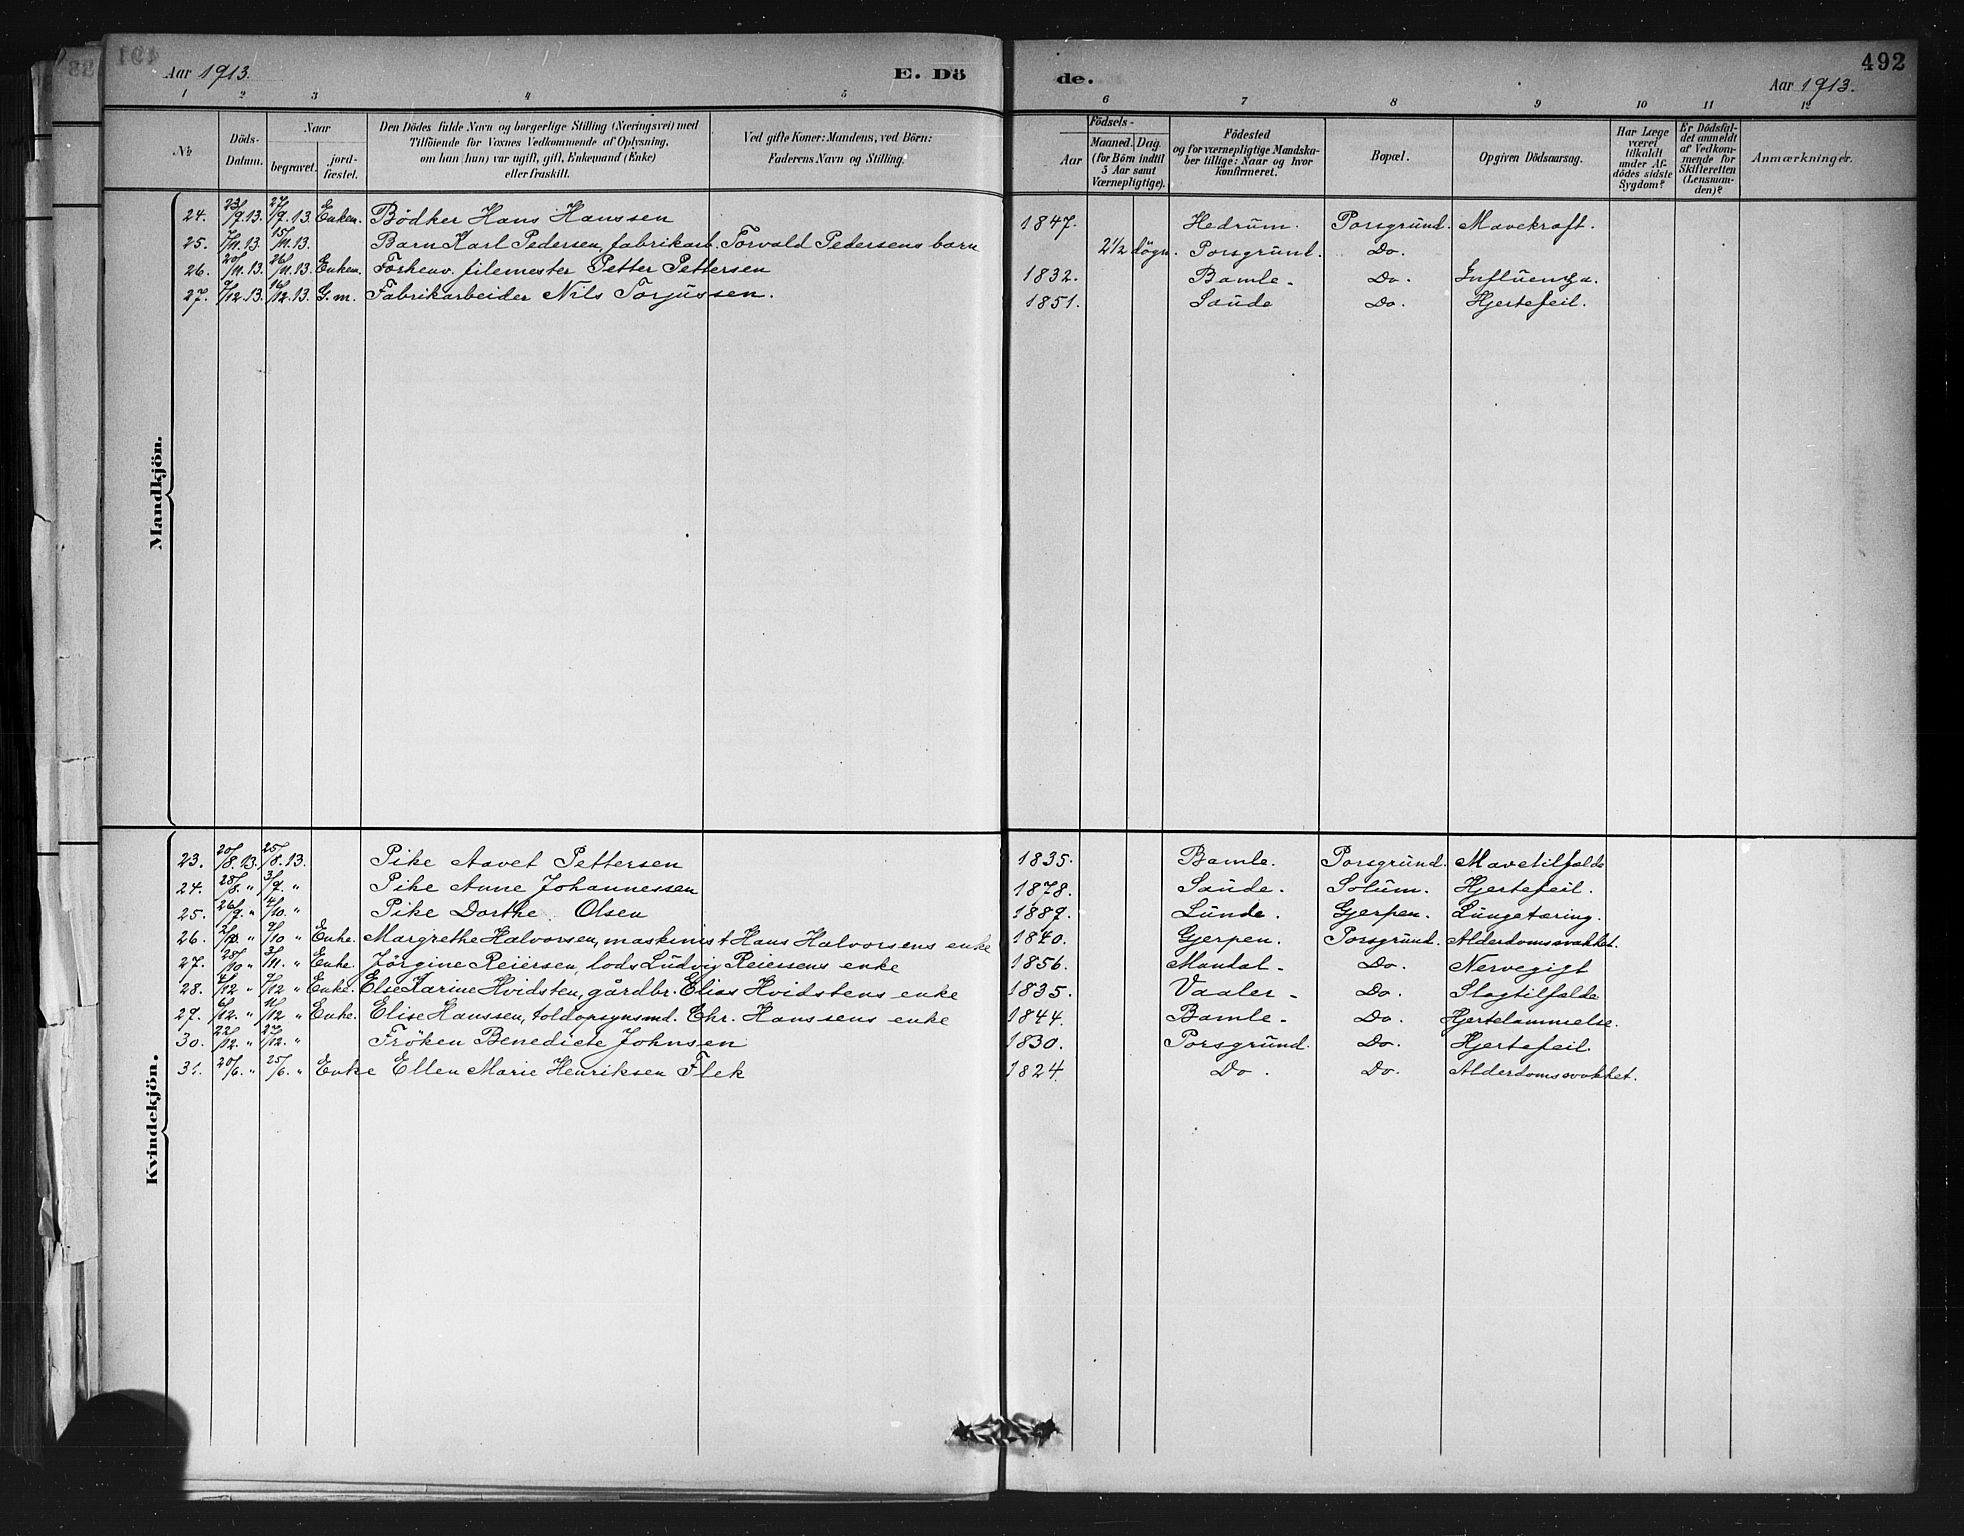 Aar 1913. E. Döde. Aar 1913. 492
1 2 3 4 5 6 7 8 9 10 11 12
№ Döds-Datum. Naar begravet. jord-fæstet. Den Dödes fulde Navn og borgerlige Stilling (Næringsvei) med Tilföiende for Voxnes Vedkommende af Oplysning, om han (hun) var ugift, gift, Enkemand (Enke) eller fraskilt. Ved gifte Koner: Mandens, ved Börn: Faderens Navn og Stilling. Födsels- Aar Maaned. Dag. (for Börn indtil 5 Aar samt Værnepligtige). Födested og for værnepligtige Mandskaber tillige: Naar og hvor konfirmeret. Bopæl. Opgiven Dödsaarsag. Har Læge været tilkaldt under Afdödes sidste Sygdom? Er Dödsfaldet anmeldt af Vedkommende for Skifteretten (Lensmanden)? Anmærkninger.
Mandkjön.
24. 23/9.13. 27/9.13. Enkem. Bödker Hans Hanssen 1847. Hedrum. Porsgrund. Mavekræft.
25. 7/11.13. 15/11.13. Barn Karl Pedersen, fabrikarb. Torvald Pedersens barn 2½ dögn. Porsgrund. Do.
26. 20/11.13. 26/11.13. Enkem. Forhenv. filemester Petter Pettersen 1832. Bamle. Do. Influenza.
27. 9/12.13. 16/12.13. G.m. Fabrikarbeider Nils Torjussen. 1851. Saude Do. Hjertefeil.
Kvindekjön.
23. 20/8.13. 25/8.13. Pike Aavet Pettersen 1835. Bamle. Porsgrund. Mavetilfælde
24. 28/8. " 3/9. " Pike Anne Johannessen 1878. Saude. Solum. Hjertefeil.
25. 26/9. " 4/10. " Pike Dorthe Olsen 1889. Lunde. Gjerpen. Lungetæring.
26. " 9/10 " Enke. Margrethe Halvorsen, maskinist Hans Halvorsens enke 1840. Gjerpen. Porsgrund. Alderdomssvakhet.
27. 28/10 " 3/11. " Enke. Jörgine Reiersen, lods Ludvig Reiersens enke 1856. Mandal. Do. Nervegigt
28. 4/12 " 9/12 " Enke. Else Karine Hvidsten, gårdbr. Elias Hvidstens enke 1835. Vaaler. Do. Slagtilfælde
29. 6/12. " 11/12 " Enke. Elise Hanssen, toldopsynsmd. Chr. Hanssens enke 1844. Bamle. Do. Hjertelammelse.
30. 22/12. " 27/12. " Fröken Benedicte Johnsen 1830. Porsgrund. Do. Hjertefeil.
31. 20/6. " 25/6. " Enke Ellen Marie Henriksen Flek 1824. Do. Do. Alderdomssvakhet.